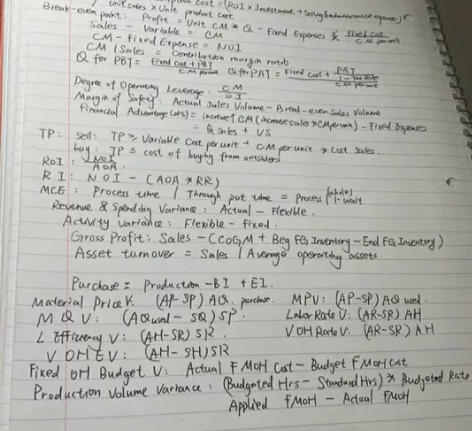 Unit product cost = (ROI × Investment + Selling & administrative expenses)
/ Unit Sales × Unit product cost
Break-even point: Profit = Unit CM * Q - Fixed Expenses Fixed Cost / CM per unit
Sales - Variable = CM
CM - Fixed Expense = NOI
CM / Sales = Contribution margin ratio
Q for PBT = Fixed cost + PBT / CM per unit Q for PAT = Fixed Cost + PAT / 1 - Tax Rate / CM per unit
Degree of Operating Leverage: CM / OI
Margin of Safety: Actual Sales Volume - Break-even Sales Volume
Financial Advantage (dis) = increase CM (increase sales * CM per unit) - Fixed Expenses
Sales + VS
TP: Sell: TP ≥ Variable Cost per unit + CM per unit * Lost Sales.
buy: TP ≤ cost of buying from outsiders
ROI: NOI / AOA
RI: NOI - (AOA * RR)
MCE: Process time / Through put time = Process / (whole) 1-wait
Revenue & Spending Variance: Actual - Flexible
Activity Variance: Flexible - Fixed.
Gross Profit: Sales - (COGM + Beg FG Inventory - End FG Inventory)
Asset turnover = Sales / Average operating assets
Purchase = Production - BI + EI.
Material Price V: (AP-SP) AQ purchase. MPV: (AP-SP) AQ used.
MQV: (AQ used - SQ) SP. Labor Rate V: (AR-SR) AH
L Efficiency V: (AH-SR) SR. VOH Rate V: (AR-SR) AH
VOHEV: (AH-SH) SR
Fixed OH Budget V: Actual FMOH Cost - Budget FMOH Cost
Production Volume Variance: (Budgeted Hrs - Standard Hrs) * Budgeted Rate
Applied FMOH - Actual FMOH